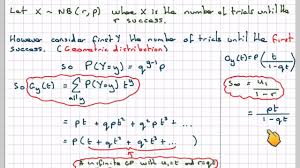 Let X ~ NB(r, p) where X is the number of trials until the
r success.
However consider first Y the number of trials until the first
success. (Geometric distribution)
So P(Y=y) = q^{y-1} p
So G_Y(t) = Σ_{all y} P(Y=y) t^y
= pt + qpt² + q²pt³ + ...
= p(t + qt² + q²t³ + ...)
A infinite GP with u₁=t and r=qt
G_Y(t) = P(t / (1-qt))
S_∞ = u₁ / (1-r)
= pt / (1-qt)